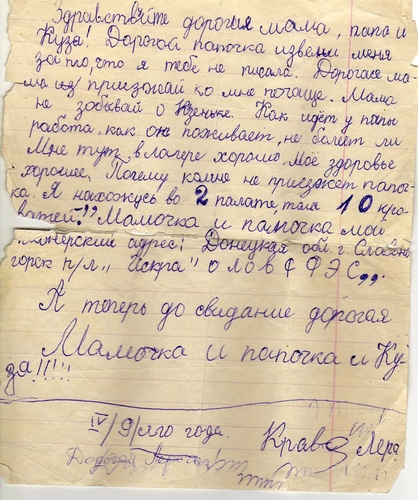 Здравствуйте дорогия мама, папа и
Куза! Дорогой папочка извени меня
за то, что я тебе не писала. Дорогая ма
ма приезжай ко мне почаще. Мама
не зобывай о Кузеньке. Как идет у папы
работа, как он поживает, не болеет ли
Мне тут в лагере хорошо. Моё здоровье
хорошие. Почему комне не приезжет папоч
ка. Я нахожусь во 2 палате, там 10 кро
ватей." Мамочка и папочка мой
пионерский адрес: Донецкая обл. г. Славян
горск п/л „Искра"
А теперь до свидание дорогая
Мамочка и папочка и Ку
зя!!!!!
IV/9/ого года. Крав Лера
Дорогая